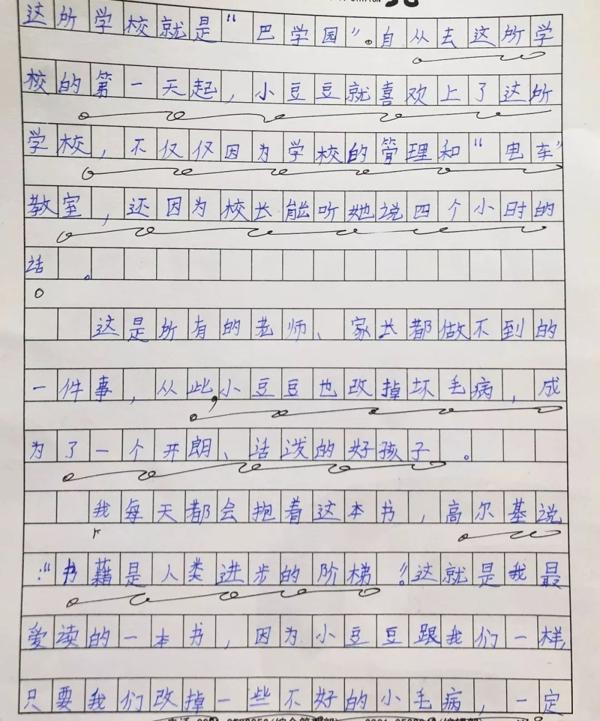 这所学校就是“巴学园”。自从去这所学
校的第一天起，小豆豆就喜欢上了这所
学校，不仅仅因为学校的管理和“电车”
教室，还因为校长能听她说四个小时的
话。
这是所有的老师、家长都做不到的
一件事，从此，小豆豆也改掉坏毛病，成
为了一个开朗、活泼的好孩子。
我每天都会抱着这本书，高尔基说
：“书藉是人类进步的阶梯”。这就是我最
爱读的一本书，因为小豆豆跟我们一样，
只要我们改掉一些不好的小毛病，一定